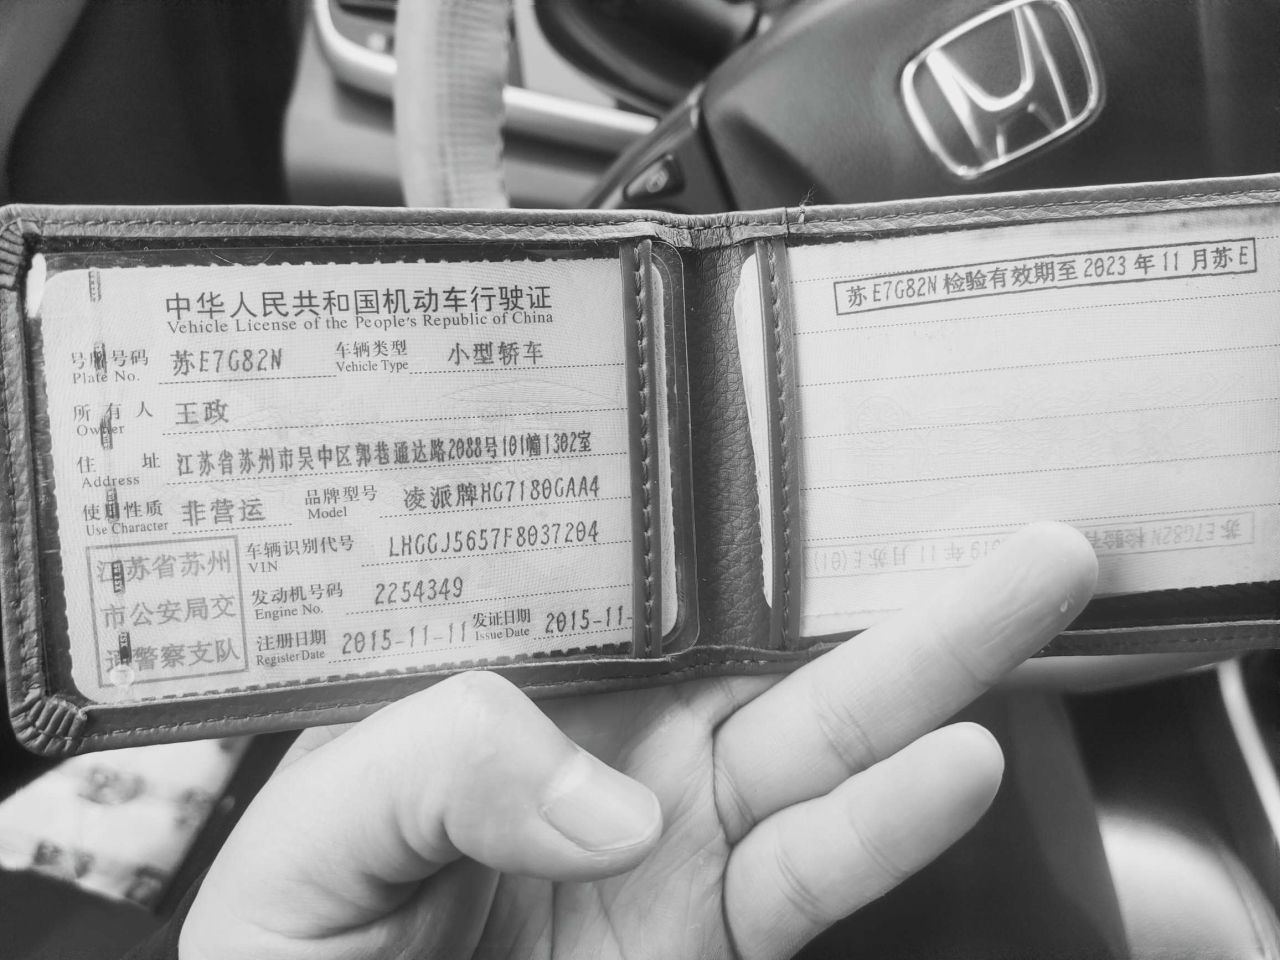 中华人民共和国机动车行驶证
Vehicle License of the People's Republic of China
号牌号码 苏E7G82N 车辆类型 小型轿车
Plate No. Vehicle Type
所有人 王政
Owner
住址 江苏省苏州市吴中区郭巷通达路2088号101幢1302室
Address
使用性质 非营运 品牌型号 凌派牌HG7180GAA4
Use Character Model
江苏省苏州
市公安局交
警察支队
车辆识别代号 LHGGJ5657F8037204
VIN
发动机号码 2254349
Engine No.
注册日期 2015-11-11 发证日期 2015-11-
Register Date Issue Date
苏E7G82N 检验有效期至 2023 年 11 月 苏E